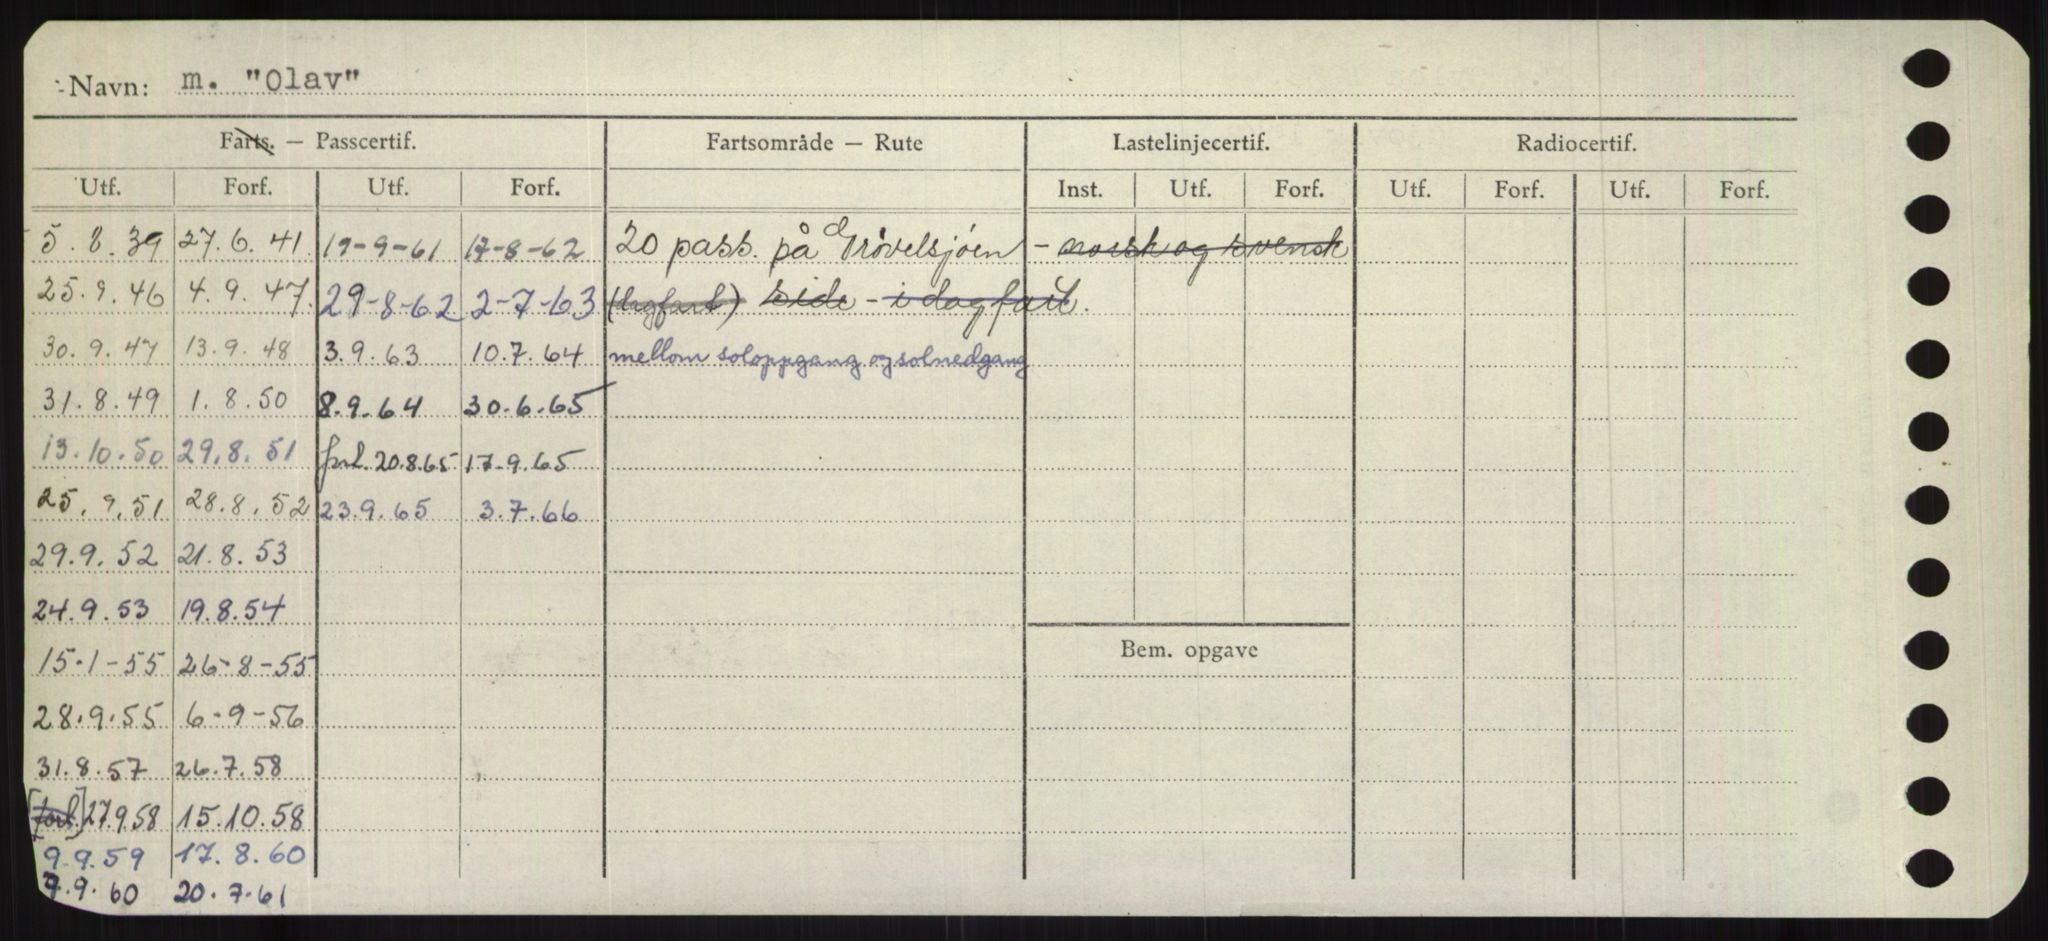 Navn: m. "Olav"
Farts. — Passcertif. Fartsområde — Rute Lastelinjecertif. Radiocertif.
Utf. Forf. Utf. Forf. Inst. Utf. Forf. Utf. Forf. Utf. Forf.
5.8.39 27.6.41 19-9-61 17-8-62 20 pass. på Grövelsjöen - norsk og svensk
25.9.46 4.9.47. 29-8-62 2-7-63 (dagfart) side - i dagfart.
30.9.47 13.9.48 3.9.63 10.7.64 mellom soloppgang og solnedgang
31.8.49 1.8.50 8.9.64 30.6.65
13.10.50 29.8.51 forl. 20.8.65 17.9.65
25.9.51 28.8.52 23.9.65 3.7.66
29.9.52 21.8.53
24.9.53 19.8.54
15.1-55 26-8-55
Bem. opgave
28.9.55 6-9-56
31.8.57 26.7.58
[forl.] 27.9.58 15.10.58
9.9.59 17.8.60
7.9.60 20.7.61